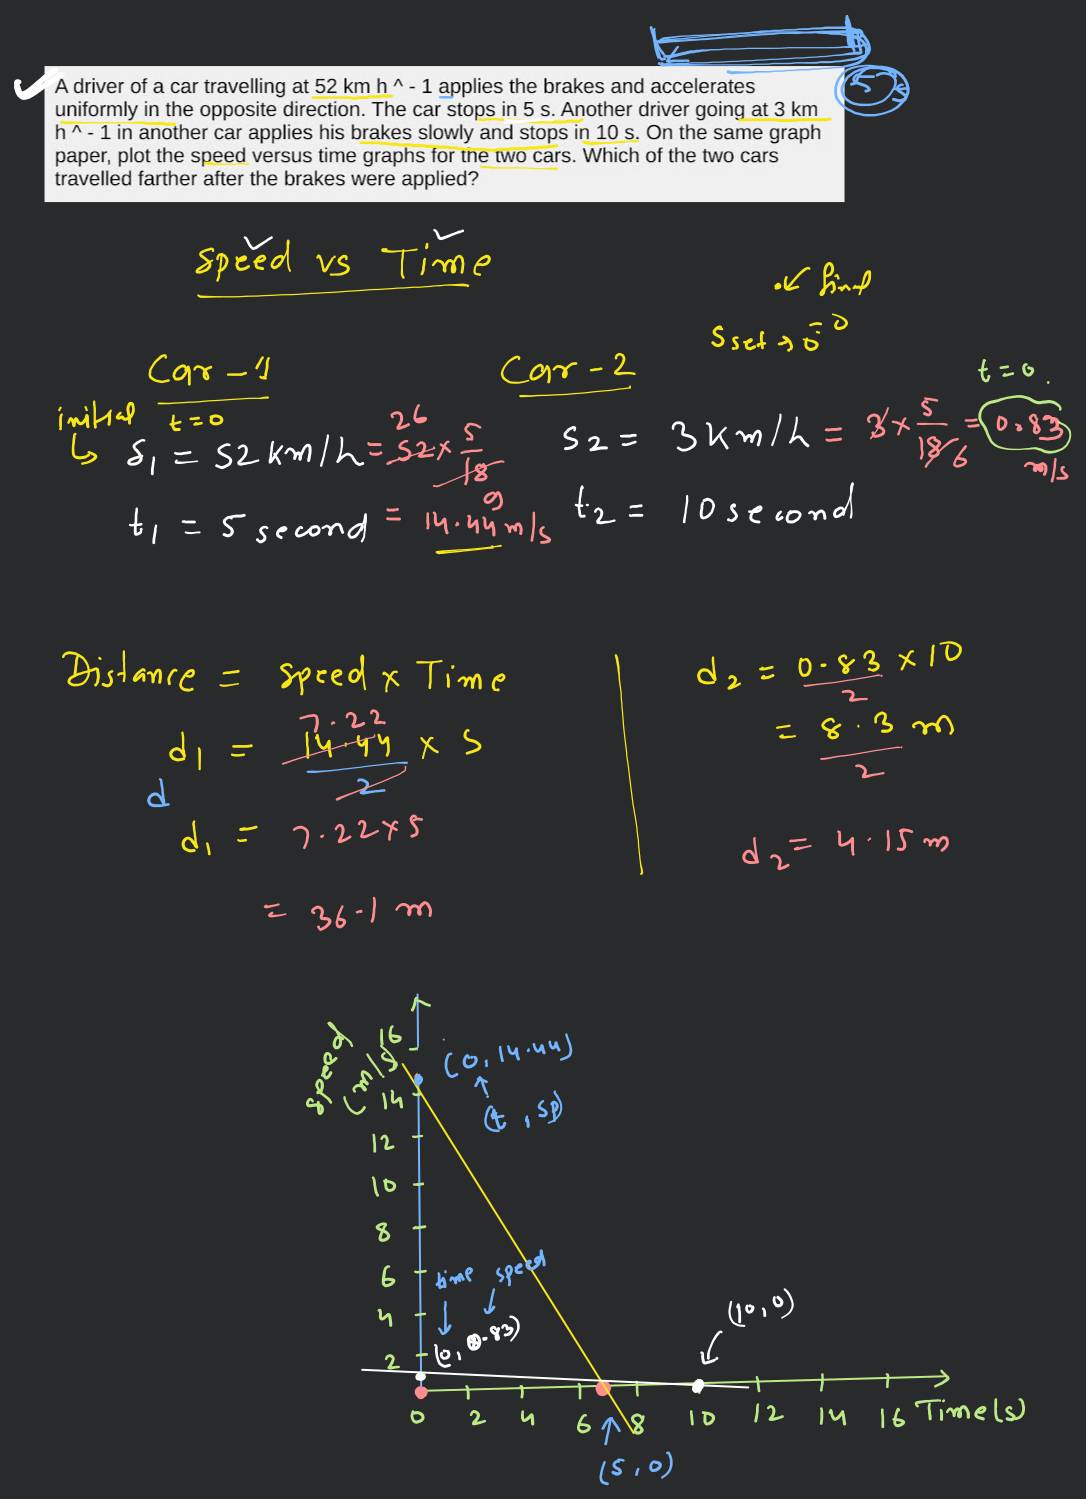 5 s
A driver of a car travelling at 52 km h ^ - 1 applies the brakes and accelerates
uniformly in the opposite direction. The car stops in 5 s. Another driver going at 3 km
h ^ - 1 in another car applies his brakes slowly and stops in 10 s. On the same graph
paper, plot the speed versus time graphs for the two cars. Which of the two cars
travelled farther after the brakes were applied?
Speed vs Time
final
= 0
Car - 1
Car - 2
t = 0
initial t = 0
S1 = 52 km/h = 52 × 5/18 26 9
S2 = 3 km/h = 3 × 5/18 6 = 0.83 m/s
t1 = 5 second = 14.44 m/s
t2 = 10 second
Distance = Speed × Time
d1 = 14.44/2 × 5 7.22
d
d1 = 7.22 × 5
= 36.1 m
d2 = 0.83/2 × 10
= 8.3/2 m
d2 = 4.15 m
Speed (m/s)
16
(0, 14.44)
14
(t, sp)
12
10
8
6
time speed
4
(0, 0.83)
(10, 0)
2
0 2 4 6 8 10 12 14 16 Time(s)
(5, 0)